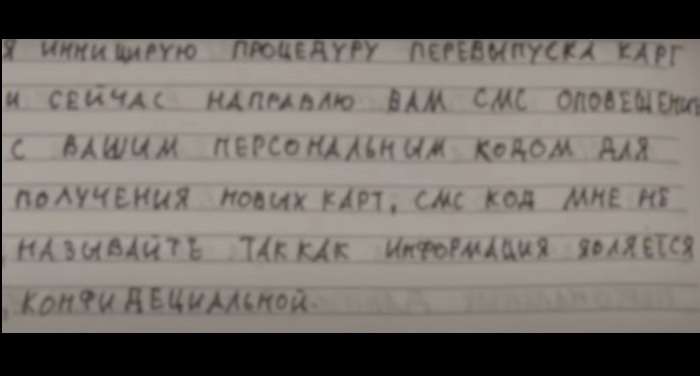 Я ИННИЦИРУЮ ПРОЦЕДУРУ ПЕРЕВЫПУСКА КАРТ
И СЕЙЧАС НАПРАВЛЮ ВАМ СМС ОПОВЕЩЕНИЕ
С ВАШИМ ПЕРСОНАЛЬНЫМ КОДОМ ДЛЯ
ПОЛУЧЕНИЯ НОВЫХ КАРТ, СМС КОД МНЕ НЕ
НАЗЫВАЙТЕ ТАК КАК ИНФОРМАЦИЯ ЯВЛЯЕТСЯ
КОНФИДЕЦИАЛЬНОЙ.